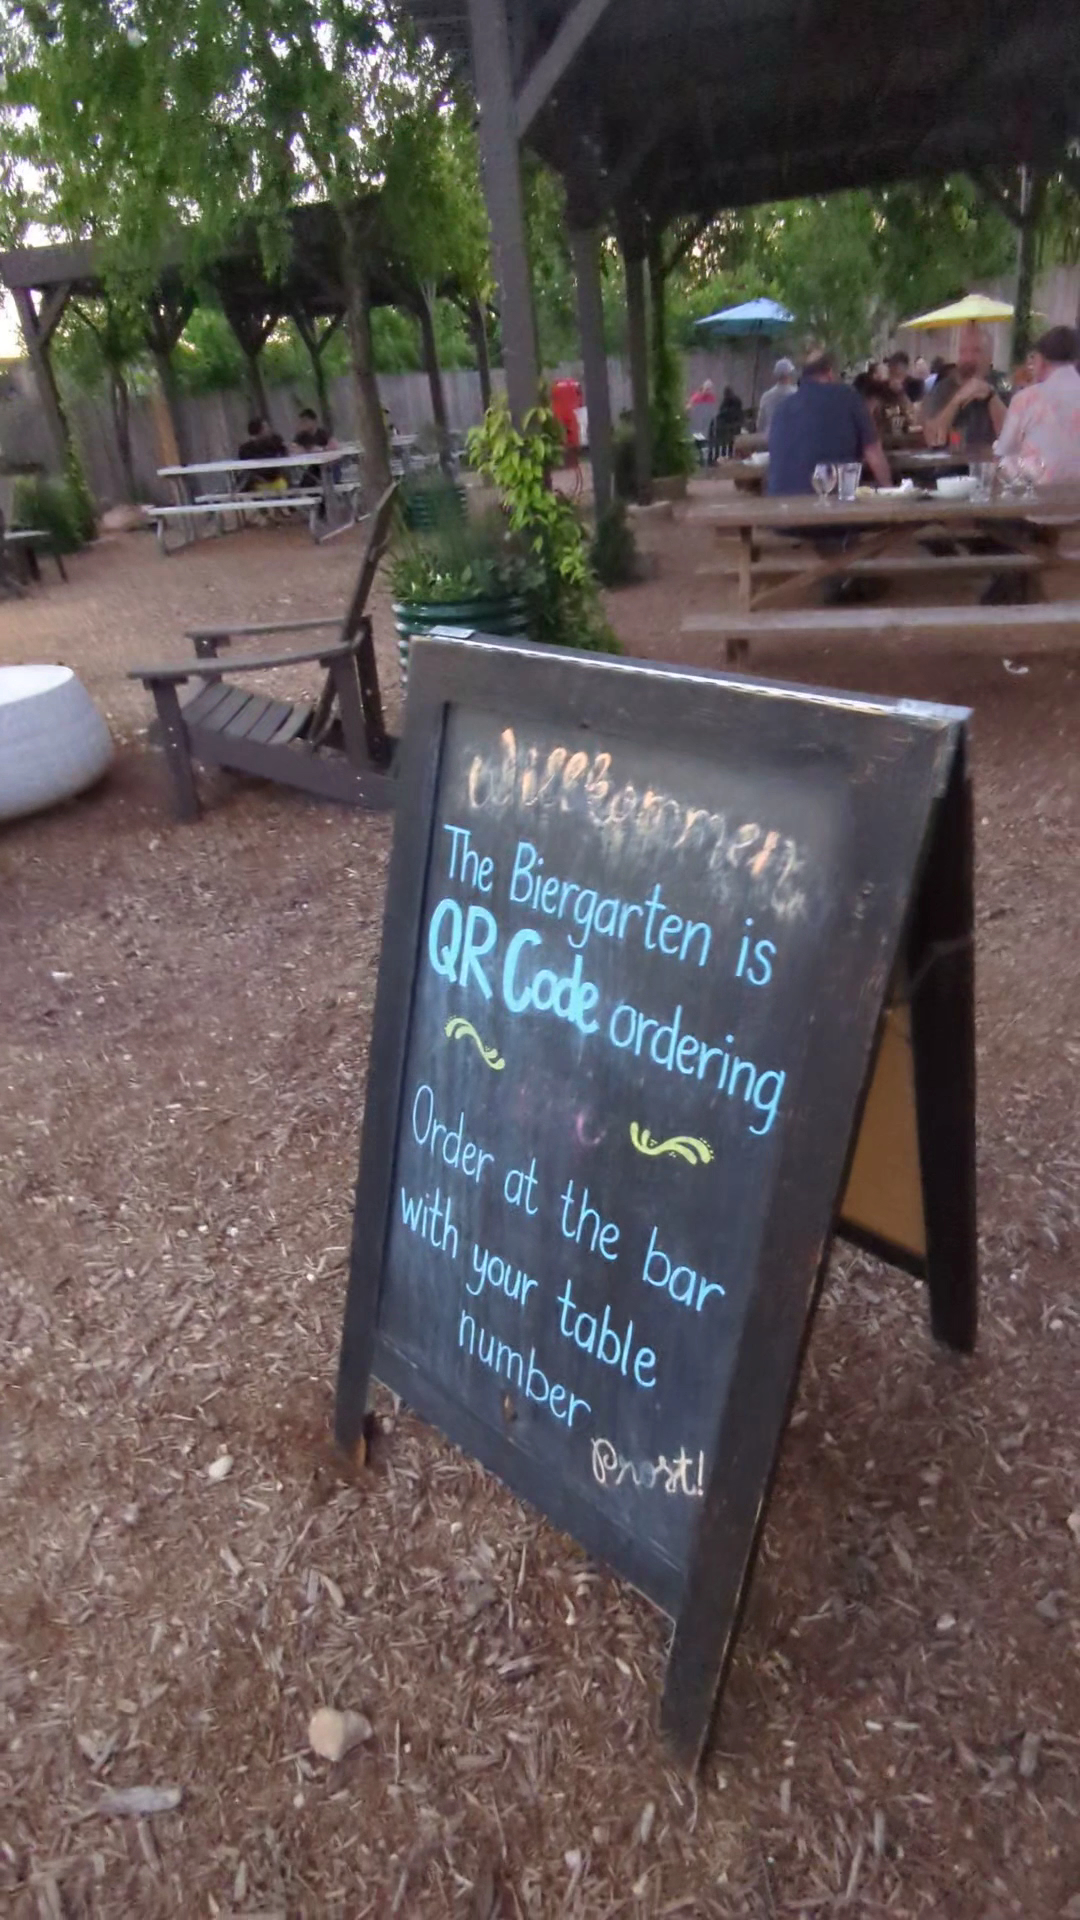 Willkommen
The Biergarten is
QR Code ordering
Order at the bar
with your table
number
Prost!